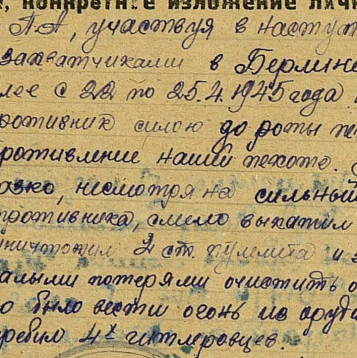 , конкретное изложение личн
П.А, участвуя в наступ
захватчиками в Берлине
лее с 22 по 25.4.1945 года
ротивник силою до роты
противление нашей пехоте.
несмотря на сильный
противника, смело выкатил
уничтожил 2 ст. пулемета и
алыми потерями очистить о
о было вести огонь из оруди
ребил 4х гитлеровцев.